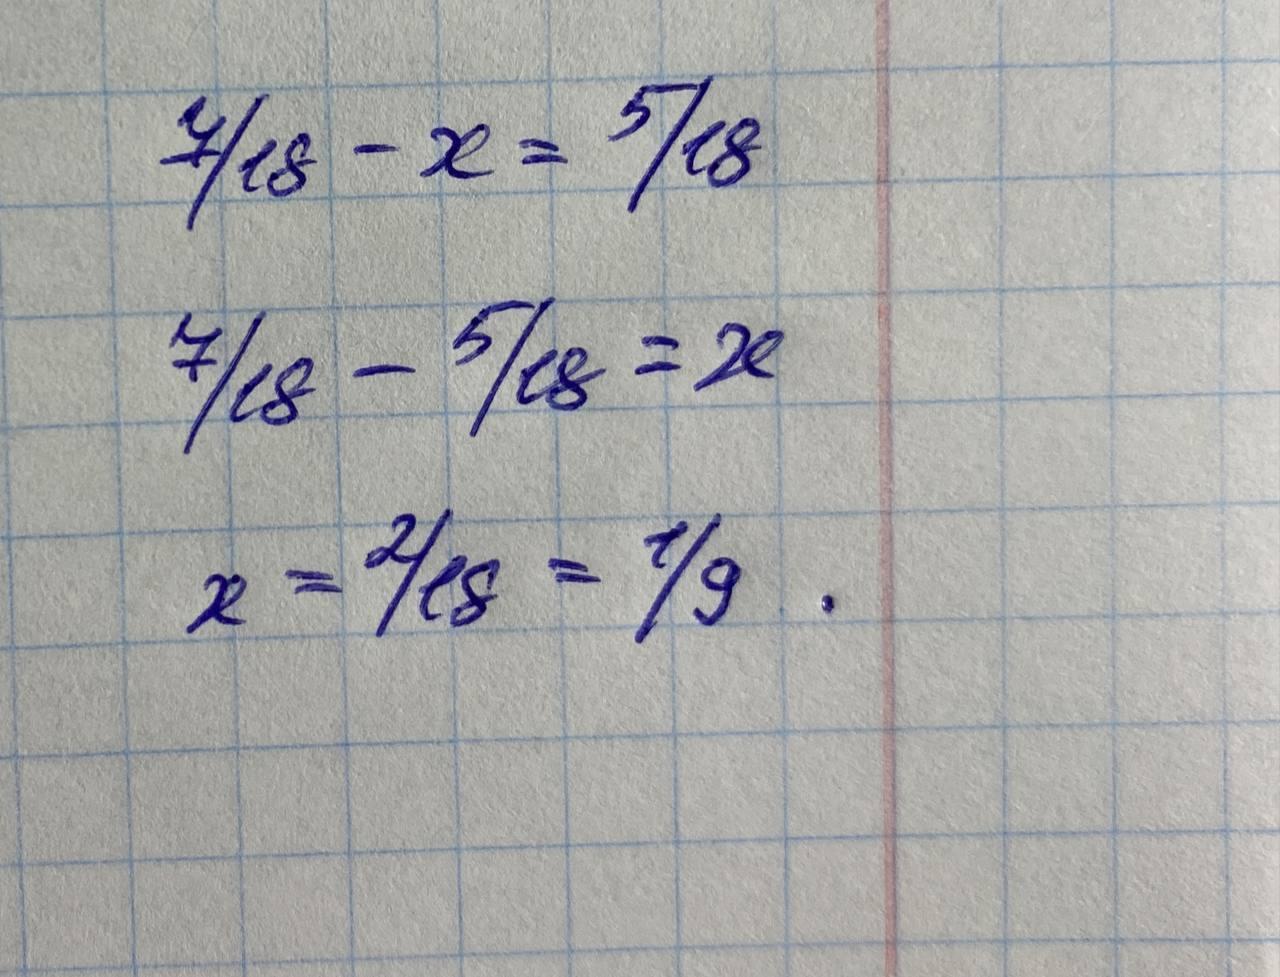 7/18 - x = 5/18
7/18 - 5/18 = x
x = 2/18 = 1/9 .